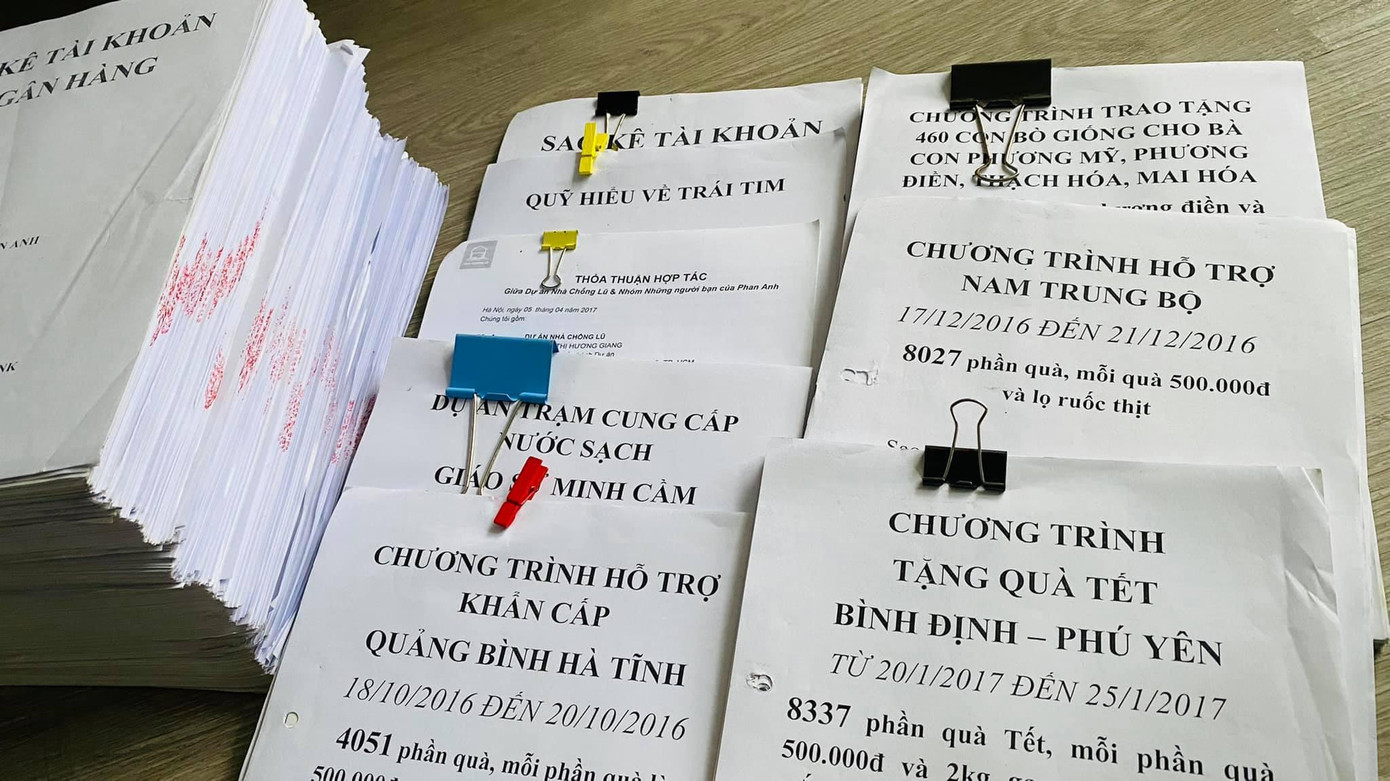 KÊ TÀI KHOẢN
NGÂN HÀNG
N ANH
NK
SAO KÊ TÀI KHOẢN
QUỸ HIỂU VỀ TRÁI TIM
THỎA THUẬN HỢP TÁC
Giữa Dự án Nhà Chống Lũ & Nhóm Những người bạn của Phan Anh
Hà Nội, ngày 05 tháng 04 năm 2017
Chúng tôi gồm:
DỰ ÁN NHÀ CHỐNG LŨ
THỊ HƯƠNG GIANG
DỰ ÁN TRẠM CUNG CẤP
NƯỚC SẠCH
GIÁO SƯ MINH CẦM
CHƯƠNG TRÌNH HỖ TRỢ
KHẨN CẤP
QUẢNG BÌNH HÀ TĨNH
18/10/2016 ĐẾN 20/10/2016
4051 phần quà, mỗi phần quà là
500.000đ
CHƯƠNG TRÌNH TRAO TẶNG
460 CON BÒ GIÓNG CHO BÀ
CON PHƯƠNG MỸ, PHƯƠNG
ĐIỀN, THẠCH HÓA, MAI HÓA
điền và
CHƯƠNG TRÌNH HỖ TRỢ
NAM TRUNG BỘ
17/12/2016 ĐẾN 21/12/2016
8027 phần quà, mỗi quà 500.000đ
và lọ ruốc thịt
Sao
CHƯƠNG TRÌNH
TẶNG QUÀ TẾT
BÌNH ĐỊNH – PHÚ YÊN
TỪ 20/1/2017 ĐẾN 25/1/2017
8337 phần quà Tết, mỗi phần quà
500.000đ và 2kg